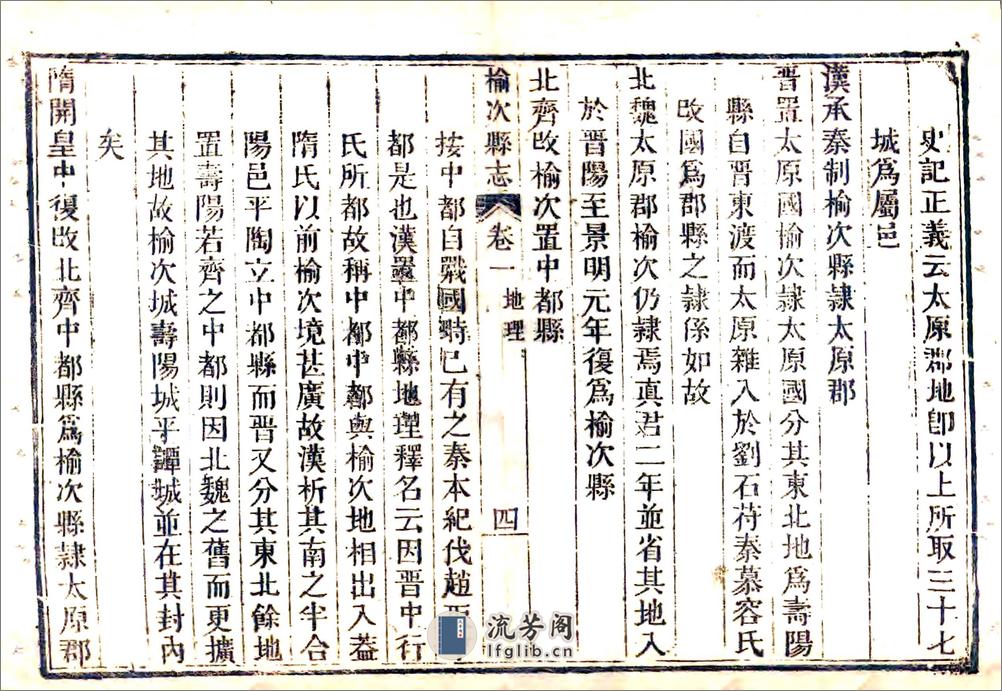 史記正義云太原郡地卽以上所取三十七
城爲屬邑
漢承秦制榆次縣隷太原郡
晉置太原國榆次隷太原國分其東北地爲壽陽
縣自晉東渡而太原雜入於劉石苻秦慕容氏
改國爲郡縣之隷係如故
北魏太原郡榆次仍隷焉真君二年並省其地入
於晉陽至景明元年復爲榆次縣
北齊改榆次置中都縣
榆次縣志 卷一 地理 四
按中都自戰國時已有之秦本紀伐趙西
都是也漢置中都縣地理釋名云因晉中行
氏所都故稱中都中都與榆次地相出入葢
隋氏以前榆次境甚廣故漢析其南之半合
陽邑平陶立中都縣而晉又分其東北餘地
置壽陽若齊之中都則因北魏之舊而更擴
其地故榆次城壽陽城平譚城並在其封內
矣
隋開皇中復改北齊中都縣爲榆次縣隷太原郡
流芳阁
lfglib.cn